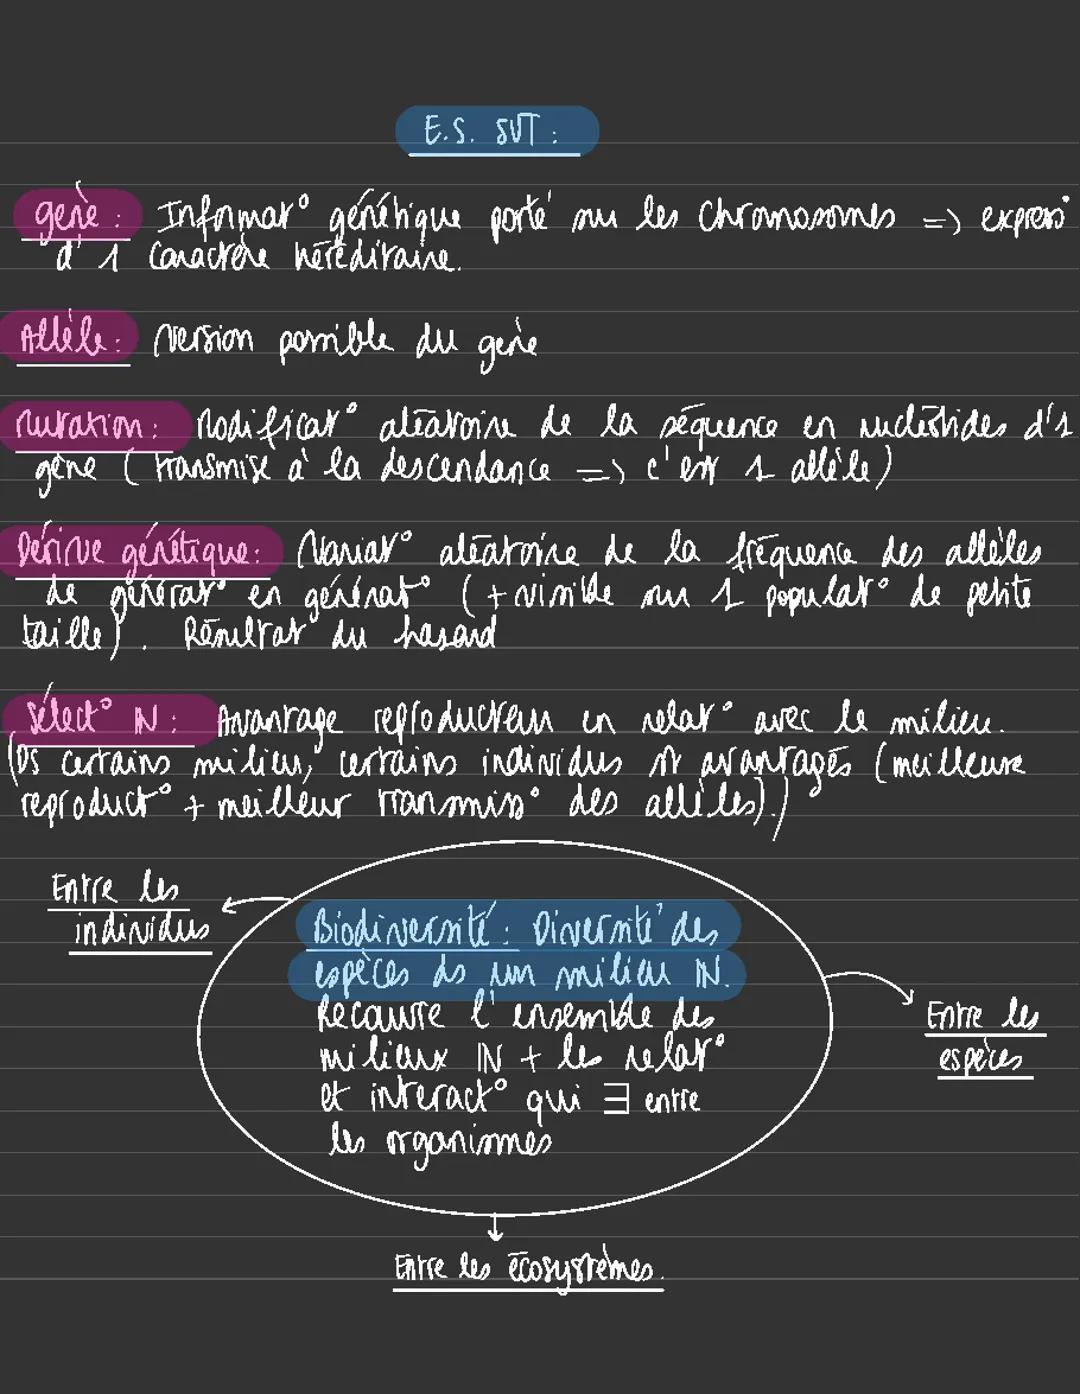 E.S. SVT :
gène : Informat° génétique porté sur les chromosomes => express°
d'1 caractère héréditaire.
Allèle : version possible du gène
Mutation : Modificat° aléatoire de la séquence en nucléotides d'1
gène (transmise à la descendance => c'est 1 allèle)
Dérive génétique : Variat° aléatoire de la fréquence des allèles
de générat° en générat° (+ visible sur 1 populat° de petite
taille). Résultat du hasard
Sélect° IN : Avantage reproducteur en relat° avec le milieu.
(Ds certains milieu, certains individus st avantagés (meilleure
reproduct° + meilleur transmiss° des allèles).)
Entre les
individus
Biodiversité : Diversité des
espèces ds un milieu IN.
Recouvre l'ensemble des
milieux IN + les relat°
et interact° qui ∃ entre
les organismes
Entre les
espèces
Entre les écosystèmes.